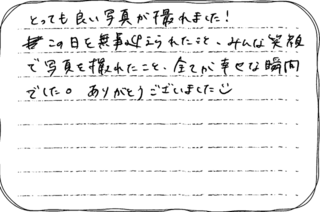 とっても良い写真が撮れました!
この日を無事迎えられたこと、みんな笑顔
で写真を撮れたこと、全てが幸せな瞬間
でした。ありがとうございました